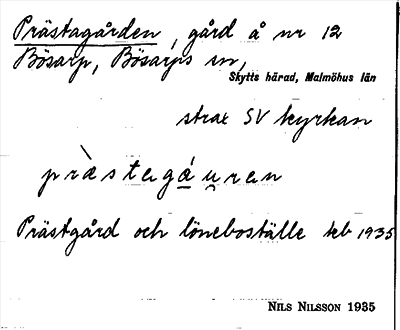 Prästagården, gård å nr 12
Bösarp, Bösarps sn,
Skytts härad, Malmöhus län
strax SV kyrkan
prὰstegá u̯ren
Prästgård och löneboställe 1935
NILS NILSSON 1935